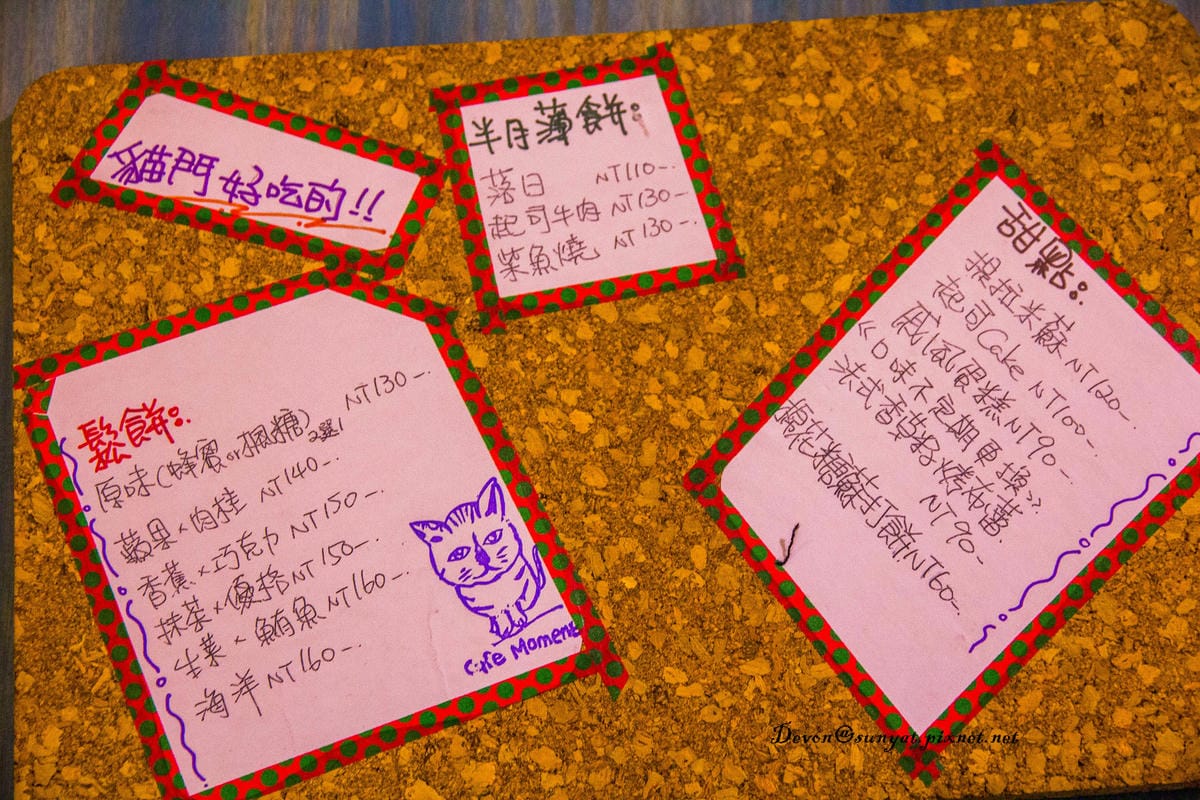 貓門好吃的!!
半月薄餅:
落日 NT110-.
起司牛肉 NT130-.
柴魚燒 NT130-.
鬆餅:
原味(蜂蜜or楓糖)2選1 NT130-.
蘋果×肉桂 NT140-.
香蕉×巧克力 NT150-.
抹茶×優格 NT150-.
生菜×鮪魚 NT160-.
海洋 NT160-.
Cafe Moment
甜點:
提拉米蘇 NT120-
起司Cake NT100-
戚風蛋糕 NT90-
《口味不定期更換》
法式香草籽烤布蕾. NT90-
棉花糖蘇打餅 NT60-
Devon@sunyat.pixnet.net